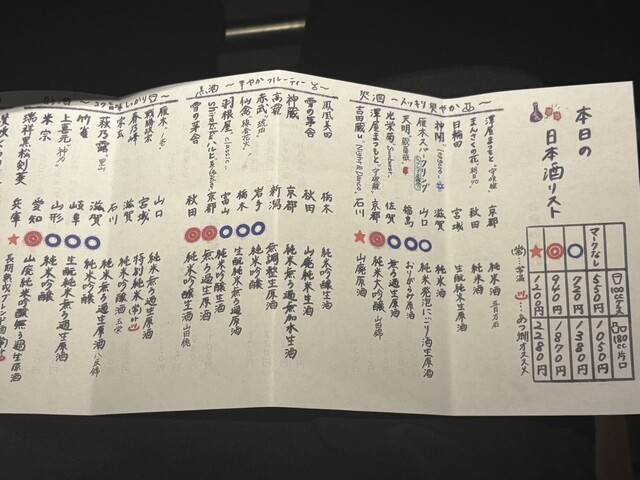 本日の
日本酒リスト
マークなし 550円 1050円
750円 1380円
940円 1870円
1200円 2280円
100ccグラス
180cc片口
(常)…常温
…あつ燗オススメ
爽酒 〜スッキリ爽やか〜
澤屋まつもと "守破離" 京都 純米酒 五百万石
まんさくの花 秋田 純米酒
日輪田 宮城 生酛純米酒
神開 滋賀 純米酒
雁木スパークリング 山口 純米発泡にごり酒生原酒
天明 福島 おりがらみ原酒
光栄菊 佐賀 無ろ過生原酒
澤屋まつもと "守破離" 京都 純米大吟醸 山田錦
吉田蔵u "Night & Dance" 石川 山廃原酒
薫酒 〜華やかフルーティー〜
鳳凰美田 栃木 純米吟醸生酒
雪の茅舎 秋田 山廃純米生酒
神蔵 京都 純米無ろ過無加水生酒
高龍 新潟 無調整生原酒
赤武 岩手 純米吟醸
仙禽 栃木 生酛純米無ろ過原酒
羽根屋 富山 純米吟醸生原酒
京都 無ろ過生原酒
雪の茅舎 秋田 純米吟醸 山田穂
〜コク旨味しっかり〜
雁木 山口 純米無ろ過生原酒
宮城 特別純米
春乃峰
宗玄 石川 純米吟醸酒
萩乃露 "里山" 滋賀 純米吟醸
竹雀 岐阜 生酛純米無ろ過生原酒
上喜元 山形 純米吟醸
米宗 愛知 山廃純米吟醸無ろ過生原酒
瑞祥黒松剣菱 兵庫 長期熟成ブレンド酒